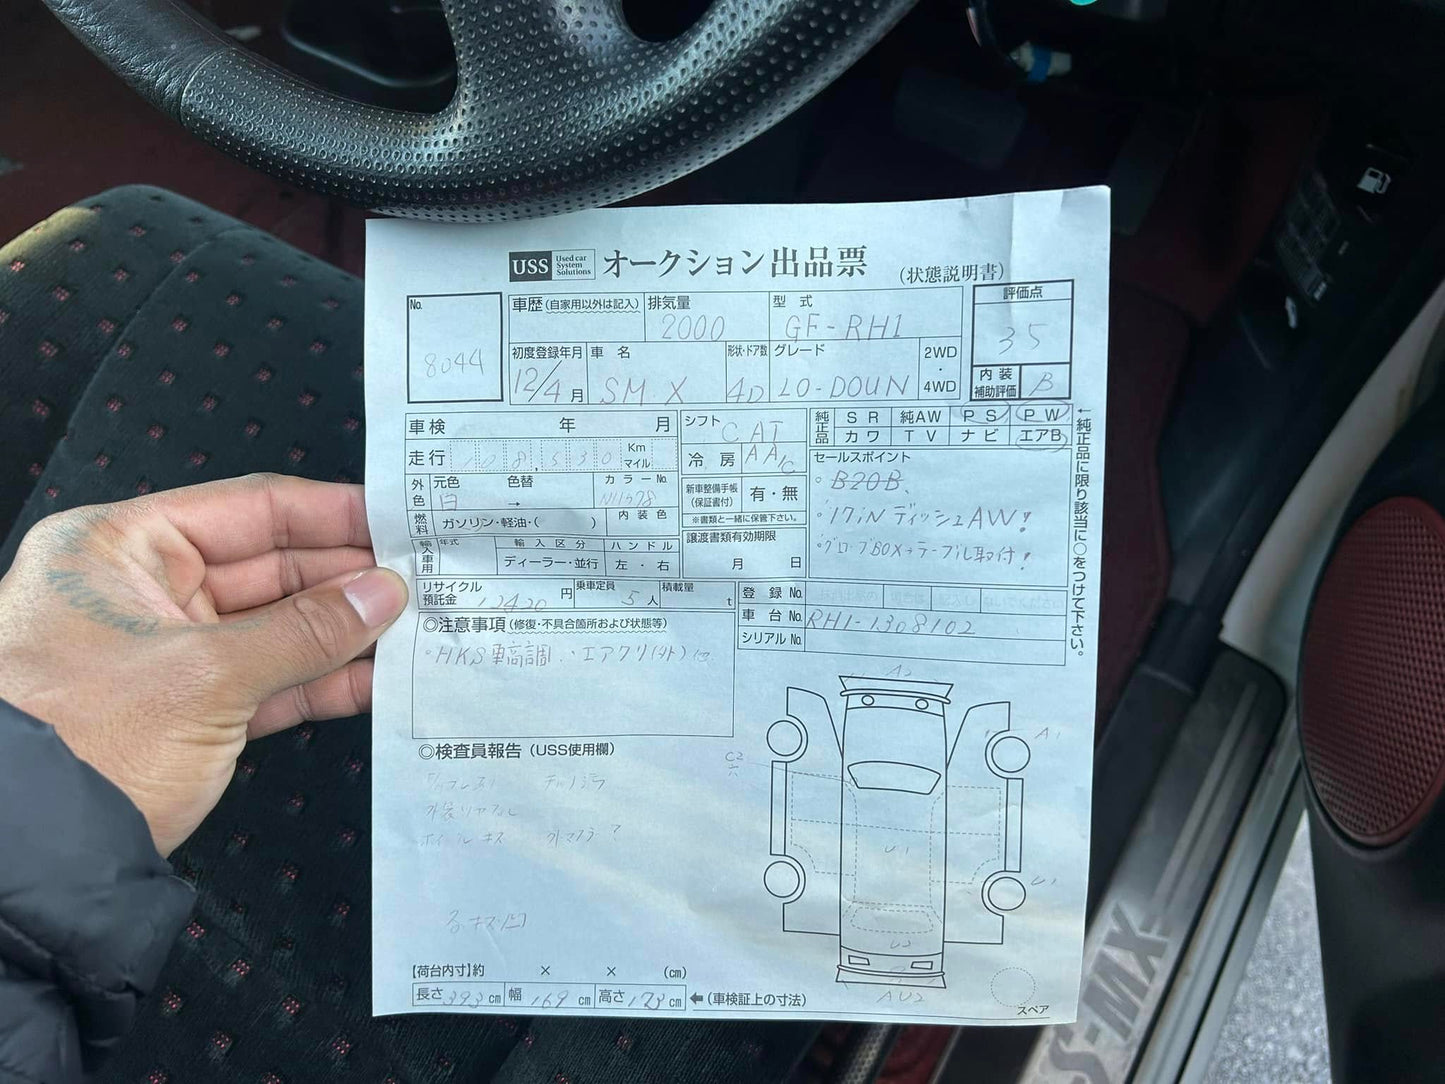 USS Used car System Solutions オークション出品票 (状態説明書)
No. 8044
車歴 (自家用以外は記入)
排気量 2000
型式 GF-RH1
評価点 35
初度登録年月 12/4月
車名 SM.X
形状・ドア数 4D
グレード LO-DOUN
2WD・4WD
内装補助評価 B
車検 年 月
走行 108,530 Km マイル
シフト CAT
冷房 AAC
純正品 SR 純AW PS PW
カワ TV ナビ エアB
←純正品に限り該当に○をつけて下さい。
外色 元色 白 色替 → カラーNo.
燃料 ガソリン・軽油・( ) 内装色
新車整備手帳 (保証書付) 有・無
※書類と一緒に保管下さい。
セールスポイント
・B20B、
・17iN ディッシュAW!
・グローブBOX→テーブル取付!
輸入車用 年式 輸入区分 ディーラー・並行 ハンドル 左・右
譲渡書類有効期限 月 日
リサイクル預託金 12420円
乗車定員 5人
積載量 t
登録No.
車台No. RH1-1308102
シリアルNo.
◎注意事項 (修復・不具合箇所および状態等)
・HKS車高調.・エアクリ(外)他
◎検査員報告 (USS使用欄)
ホイールキズ
A2
A1
C2
U1
U1
U2
AU2
【荷台内寸】約 × × (cm)
長さ393cm 幅169cm 高さ173cm ←(車検証上の寸法)
スペア
S-MX